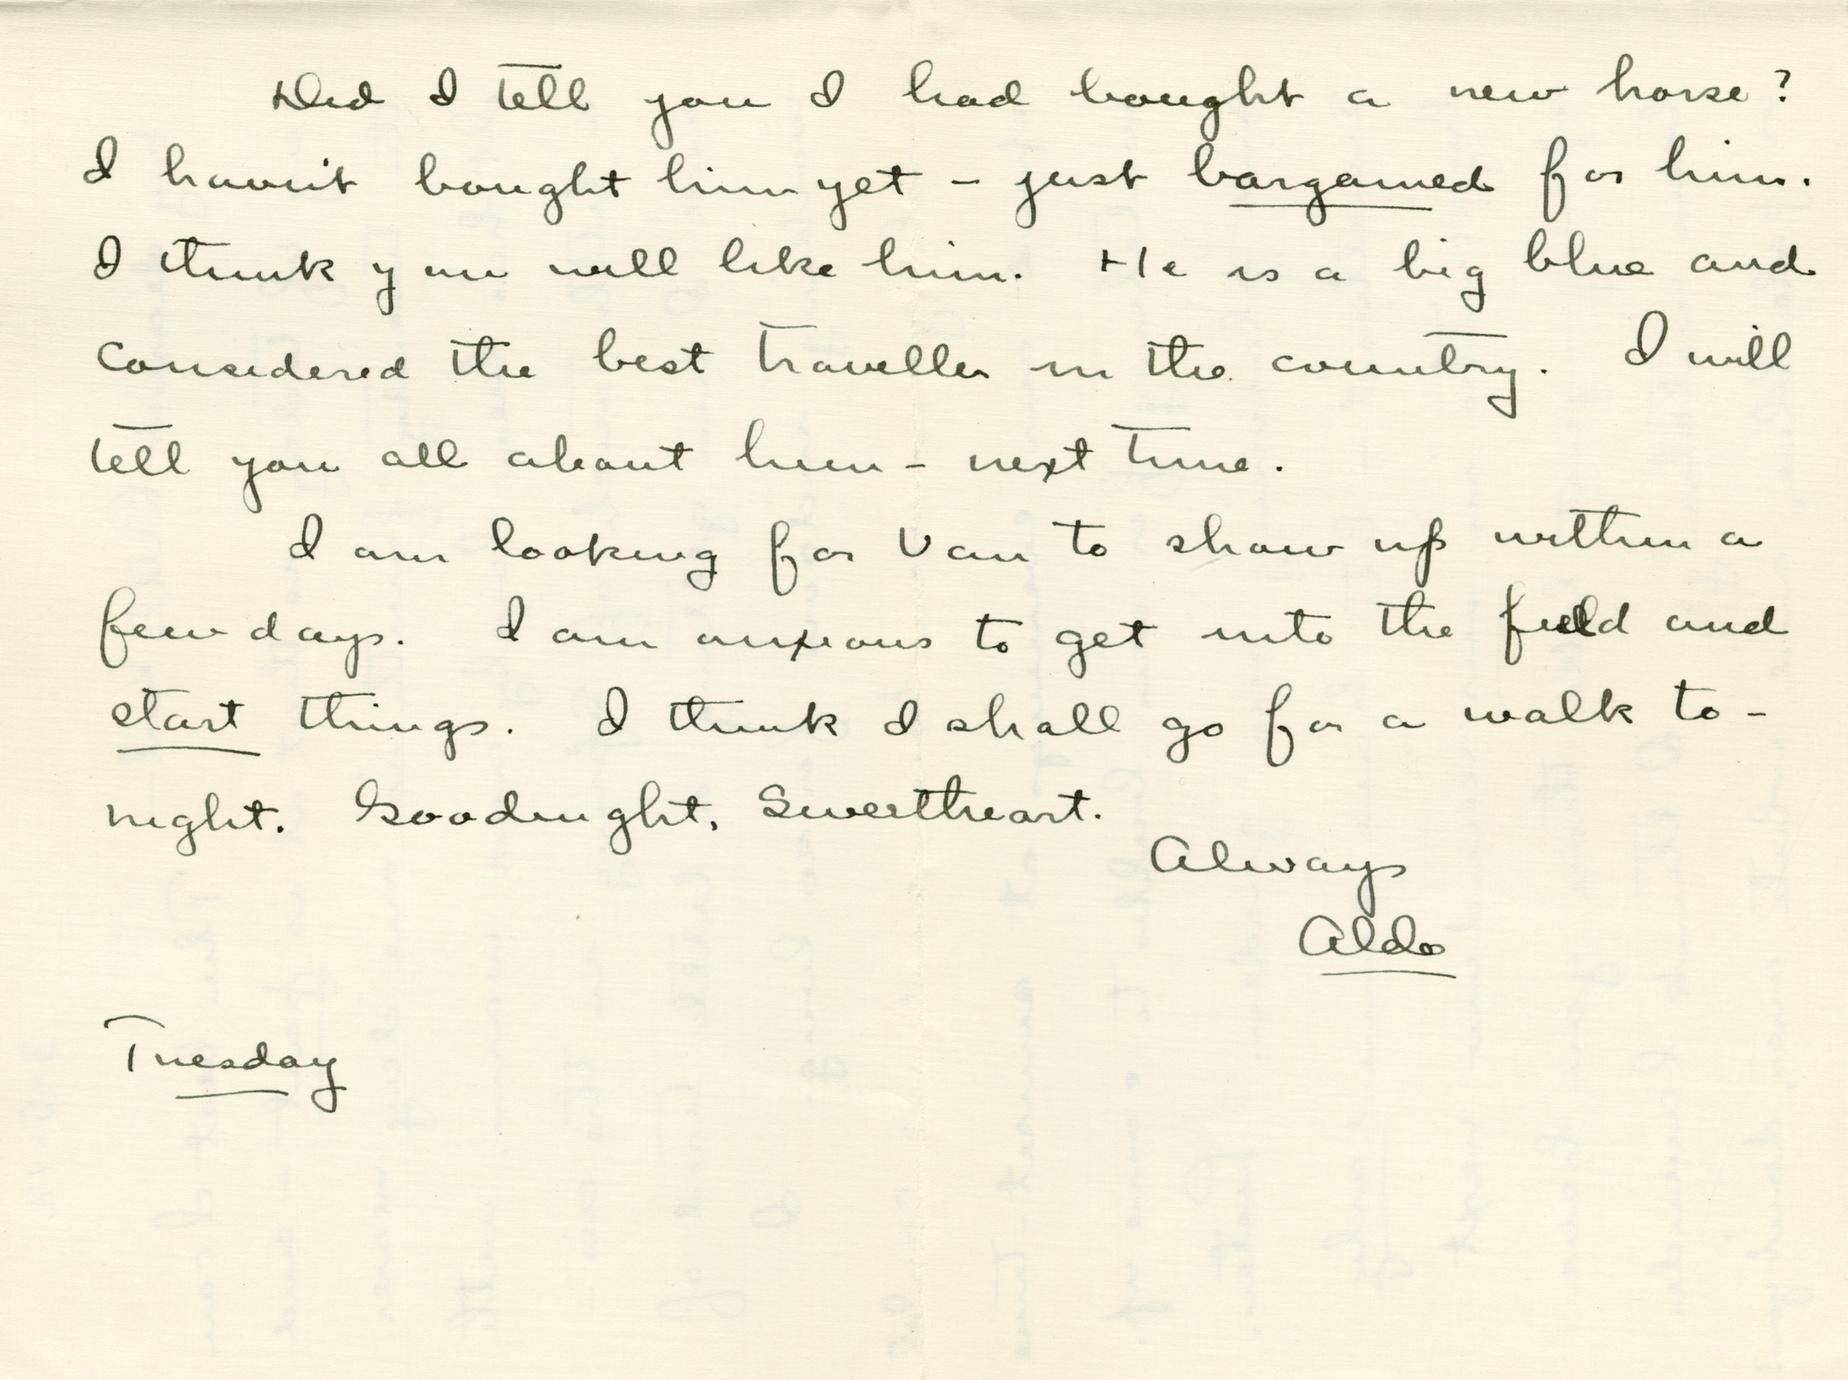 Did I tell you I had bought a new horse?
I haven't bought him yet - just bargained for him.
I think you will like him. He is a big blue and
considered the best traveller in the country. I will
tell you all about him - next time.
I am looking for Van to show up within a
few days. I am anxious to get into the field and
start things. I think I shall go for a walk to-
night. Goodnight, Sweetheart.
Always
Aldo
Tuesday